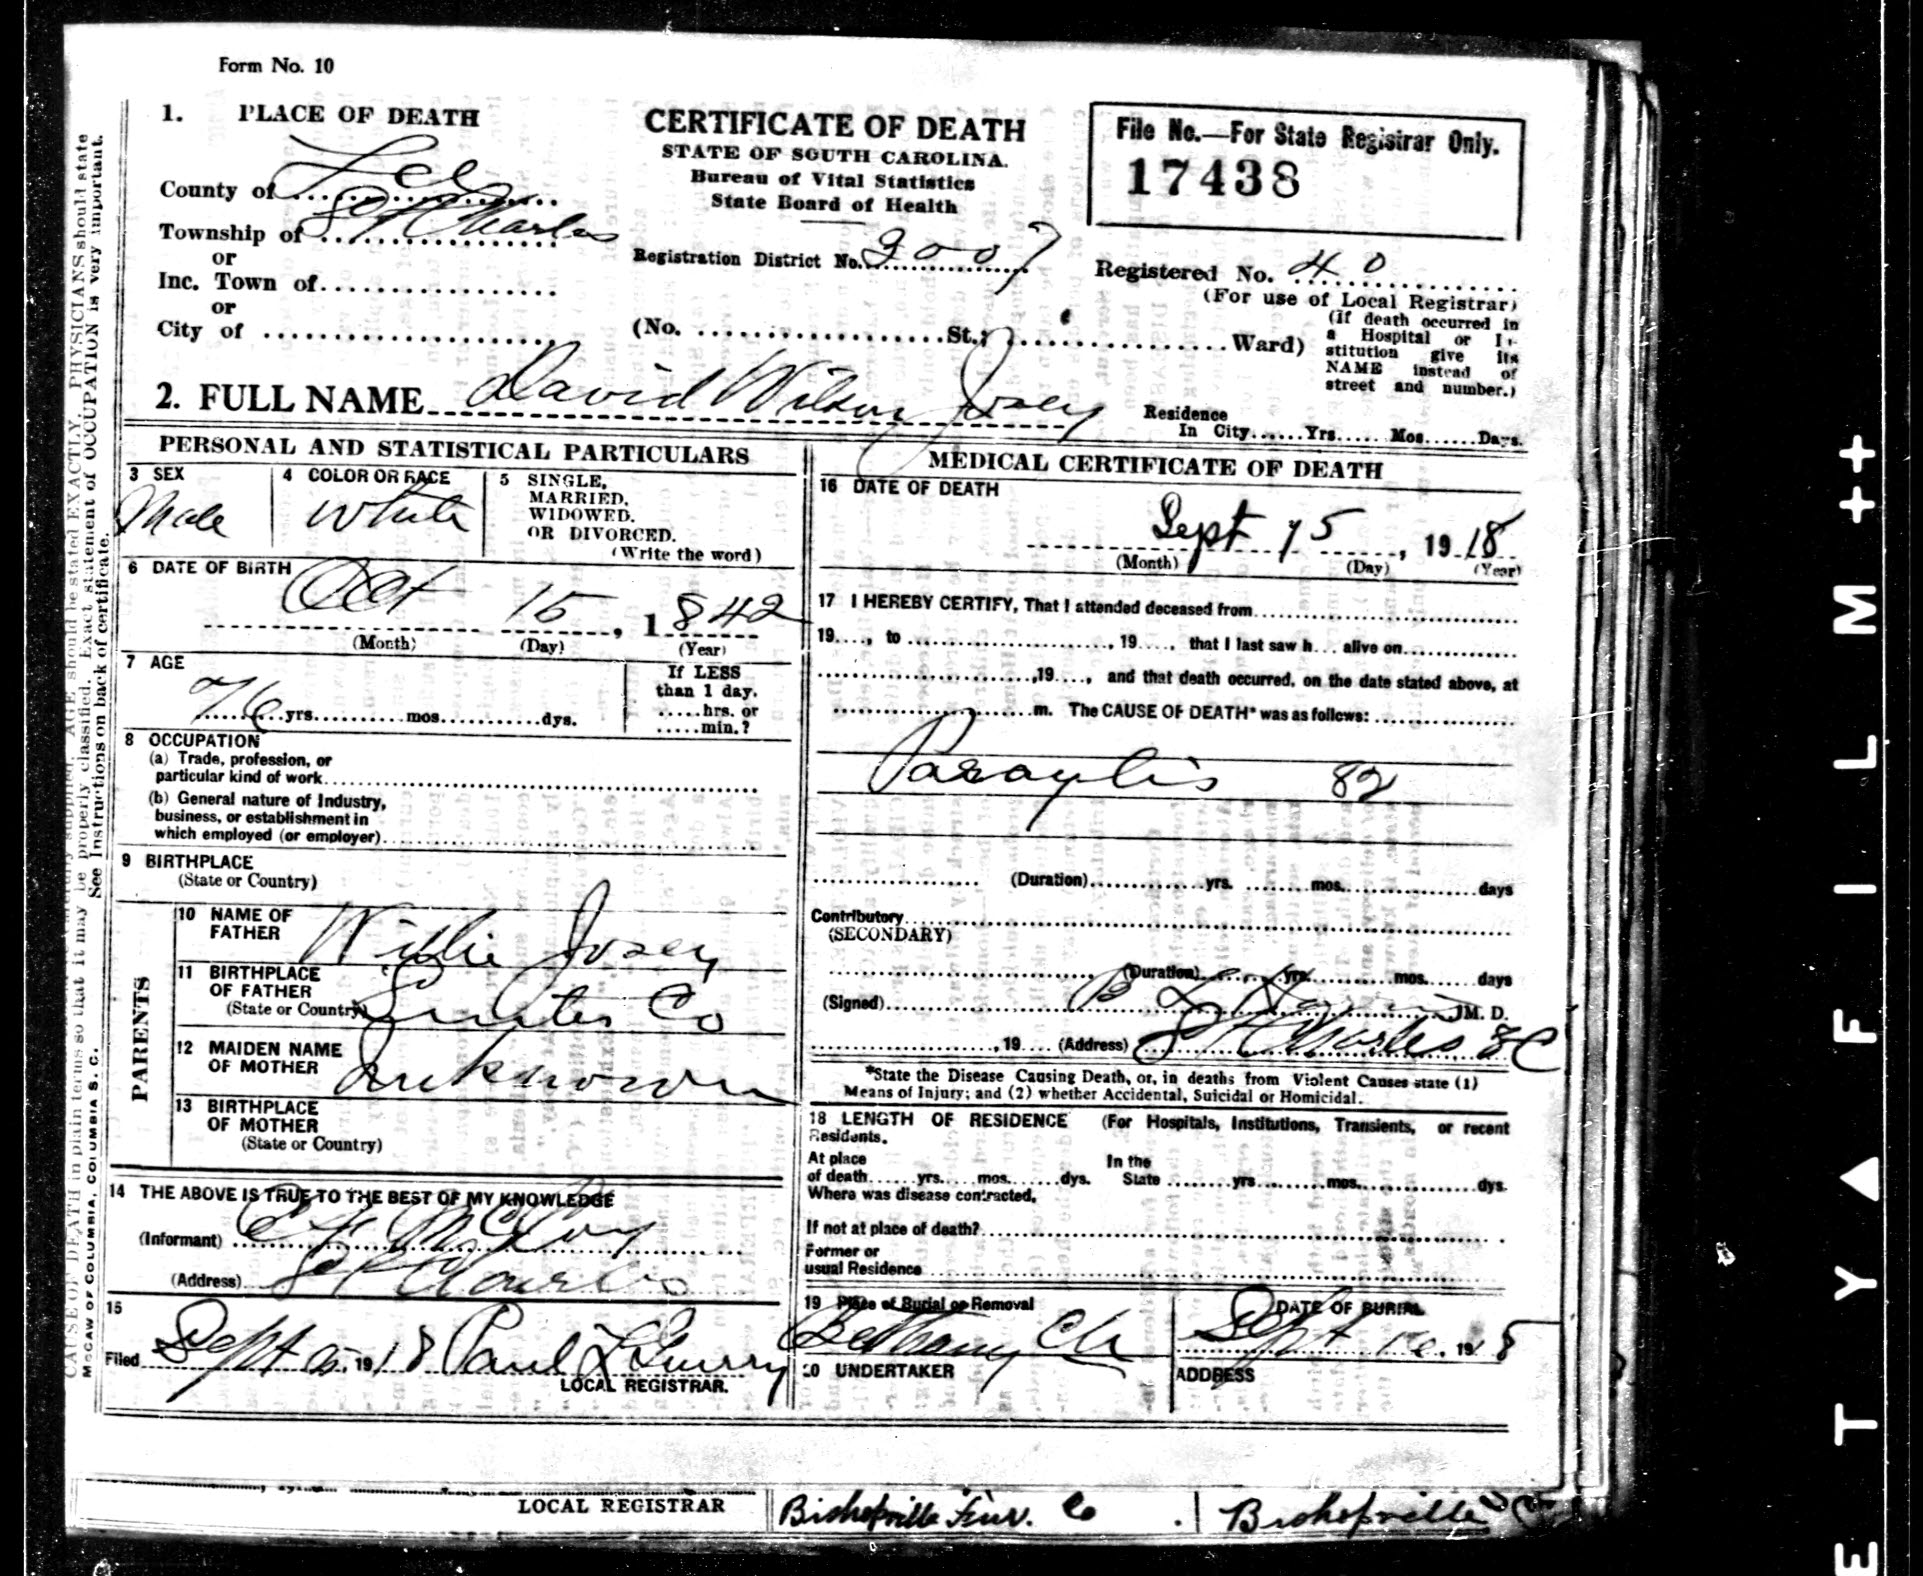 Form No. 10
1. PLACE OF DEATH
County of Lee
Township of St Charles
or
Inc. Town of
or
City of
CERTIFICATE OF DEATH
STATE OF SOUTH CAROLINA.
Bureau of Vital Statistics
State Board of Health
Registration District No. 3007
(No. St.; Ward)
File No.—For State Registrar Only.
17438
Registered No. 40
(For use of Local Registrar)
(If death occurred in
a Hospital or In-
stitution give its
NAME instead of
street and number.)
2. FULL NAME David Wilson Josey
Residence
In City Yrs. Mos. Days.
PERSONAL AND STATISTICAL PARTICULARS
3 SEX
Male
4 COLOR OR RACE
White
5 SINGLE,
MARRIED,
WIDOWED.
OR DIVORCED.
(Write the word)
6 DATE OF BIRTH
Oct 15, 1842
(Month) (Day) (Year)
7 AGE
76 yrs. mos. dys.
If LESS
than 1 day.
hrs. or
min.?
8 OCCUPATION
(a) Trade, profession, or
particular kind of work
(b) General nature of Industry,
business, or establishment in
which employed (or employer)
9 BIRTHPLACE
(State or Country)
PARENTS
10 NAME OF
FATHER
Willie Josey
11 BIRTHPLACE
OF FATHER
(State or Country)
Sumter Co
12 MAIDEN NAME
OF MOTHER
Unknown
13 BIRTHPLACE
OF MOTHER
(State or Country)
14 THE ABOVE IS TRUE TO THE BEST OF MY KNOWLEDGE
(Informant) McCoy
(Address) St Charles
15
Filed Sept 1918 Paul
LOCAL REGISTRAR.
MEDICAL CERTIFICATE OF DEATH
16 DATE OF DEATH
Sept 15, 1918
(Month) (Day) (Year)
17 I HEREBY CERTIFY, That I attended deceased from
19 , to , 19 , that I last saw h alive on
,19 , and that death occurred, on the date stated above, at
m. The CAUSE OF DEATH* was as follows:
Paraylis 82
(Duration) yrs. mos. days
Contributory
(SECONDARY)
(Duration) yrs. mos. days
(Signed) M. D.
, 19 (Address) St Charles S C
*State the Disease Causing Death, or, in deaths from Violent Causes state (1)
Means of Injury; and (2) whether Accidental, Suicidal or Homicidal.
18 LENGTH OF RESIDENCE (For Hospitals, Institutions, Transients, or recent
Residents.
At place In the
of death yrs. mos. dys. State yrs. mos. dys.
Where was disease contracted,
If not at place of death?
Former or
usual Residence
19 Place of Burial or Removal
Bethany Ch
DATE OF BURIAL
Sept 16, 1918
20 UNDERTAKER
ADDRESS
LOCAL REGISTRAR
Bishopville Fur. Co
Bishopville
CAUSE OF DEATH in plain terms so that it may be properly classified. Exact statement of OCCUPATION is very important.
AGE should be stated EXACTLY. PHYSICIANS should state
See Instructions on back of certificate.
McCAW OF COLUMBIA, COLUMBIA S. C.
E T Y ▲ F I L M ++